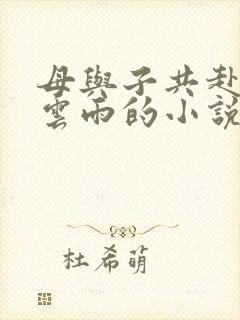 母與子共赴
雲雨的小說
杜希萌